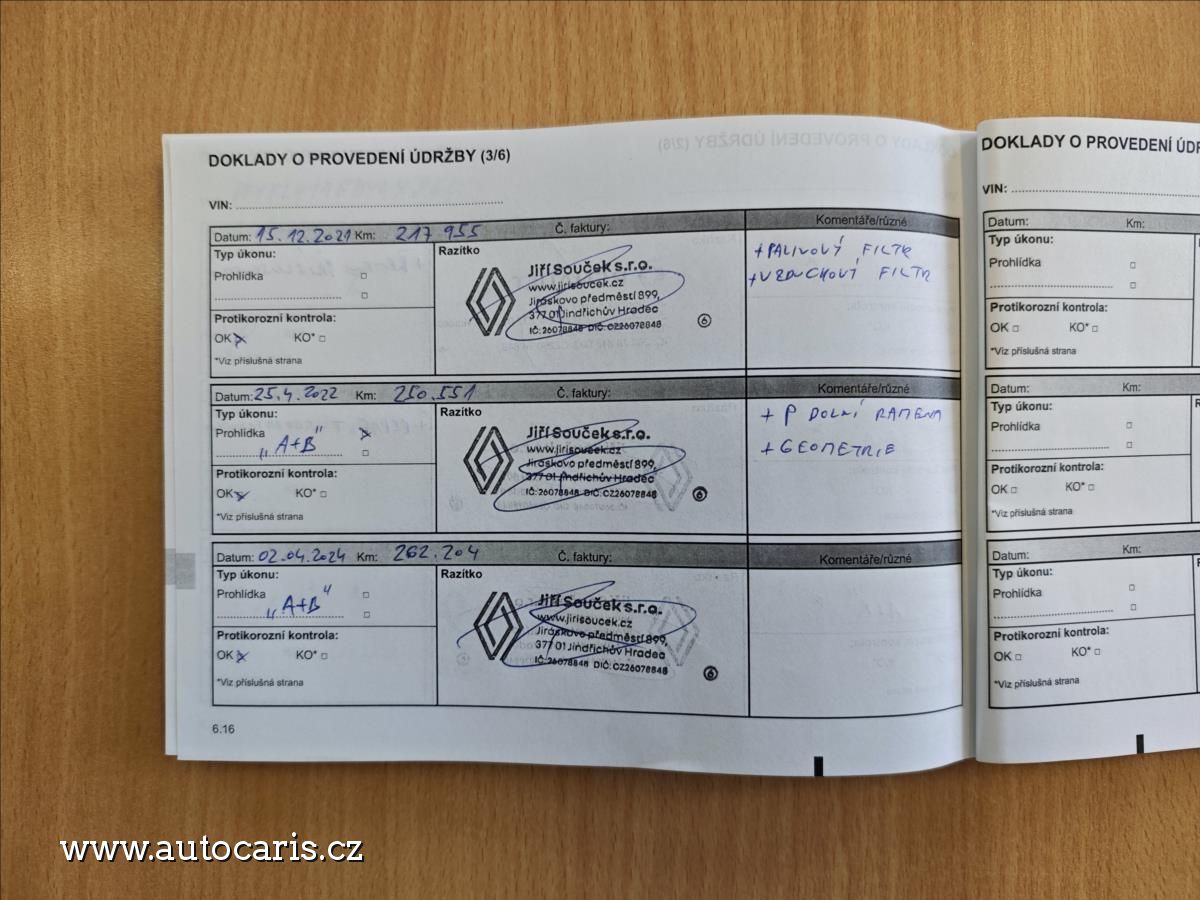 DOKLADY O PROVEDENÍ ÚDRŽBY (3/6)
VIN:
Datum: 15.12.2021 Km: 217 955 Č. faktury: Komentáře/různé
Typ úkonu:
Prohlídka
Protikorozní kontrola:
OK KO*
*Viz příslušná strana
Razítko
Jiří Souček s.r.o.
www.jirisoucek.cz
Jiráskovo předměstí 899,
377 01 Jindřichův Hradec
IČ: 26078848 DIČ: CZ26078848
6
+PALIVOVÝ FILTR
+VZDUCHOVÝ FILTR
Datum: 25.4.2022 Km: 250.551 Č. faktury: Komentáře/různé
Typ úkonu:
Prohlídka
„A+B"
Protikorozní kontrola:
OK KO*
*Viz příslušná strana
Razítko
Jiří Souček s.r.o.
www.jirisoucek.cz
Jiráskovo předměstí 899,
377 01 Jindřichův Hradec
IČ: 26078848 DIČ: CZ26078848
6
+ P DOLNÍ RAMENA
+GEOMETRIE
Datum: 02.04.2024 Km: 262.204 Č. faktury: Komentáře/různé
Typ úkonu:
Prohlídka
„A+B"
Protikorozní kontrola:
OK KO*
*Viz příslušná strana
Razítko
Jiří Souček s.r.o.
www.jirisoucek.cz
Jiráskovo předměstí 899,
377 01 Jindřichův Hradec
IČ: 26078848 DIČ: CZ26078848
6
6.16
DOKLADY O PROVEDENÍ
VIN:
Datum: Km:
Typ úkonu:
Prohlídka
Protikorozní kontrola:
OK KO*
*Viz příslušná strana
Datum: Km:
Typ úkonu:
Prohlídka
Protikorozní kontrola:
OK KO*
*Viz příslušná strana
Datum: Km:
Typ úkonu:
Prohlídka
Protikorozní kontrola:
OK KO*
*Viz příslušná strana
www.autocaris.cz